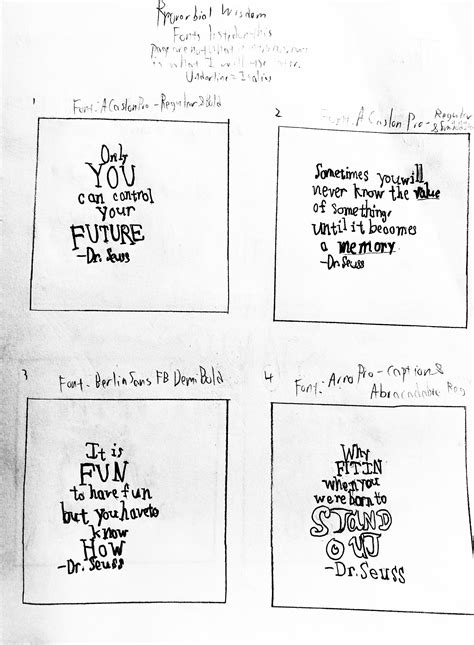 Proverbial Wisdom
Fonts listed on this
page are not what
is what I will use later.
Underline = Italics
1
Font: A Caslon Pro - Regular & Bold
2
Font: A Caslon Pro - Regular
&
Only
YOU
can control
your
FUTURE
-Dr. Seuss
Sometimes you will
never know the value
of something,
until it becomes
a memory.
-Dr. Seuss
3
Font: Berlin Sans FB Demi Bold
4
Font: Arno Pro - Caption &
Reg
It is
FUN
to have fun
but you have to
know
HOW
-Dr. Seuss
Why
FIT IN
when you
were born to
STAND
OUT
-Dr. Seuss